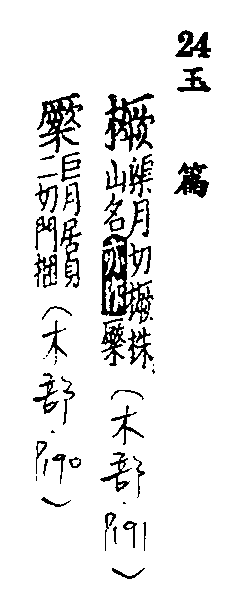 24 玉篇
橛 渠月切橛株
山名亦作橜(木部.P191)
橜 巨月居月
二切門梱(木部.P190)